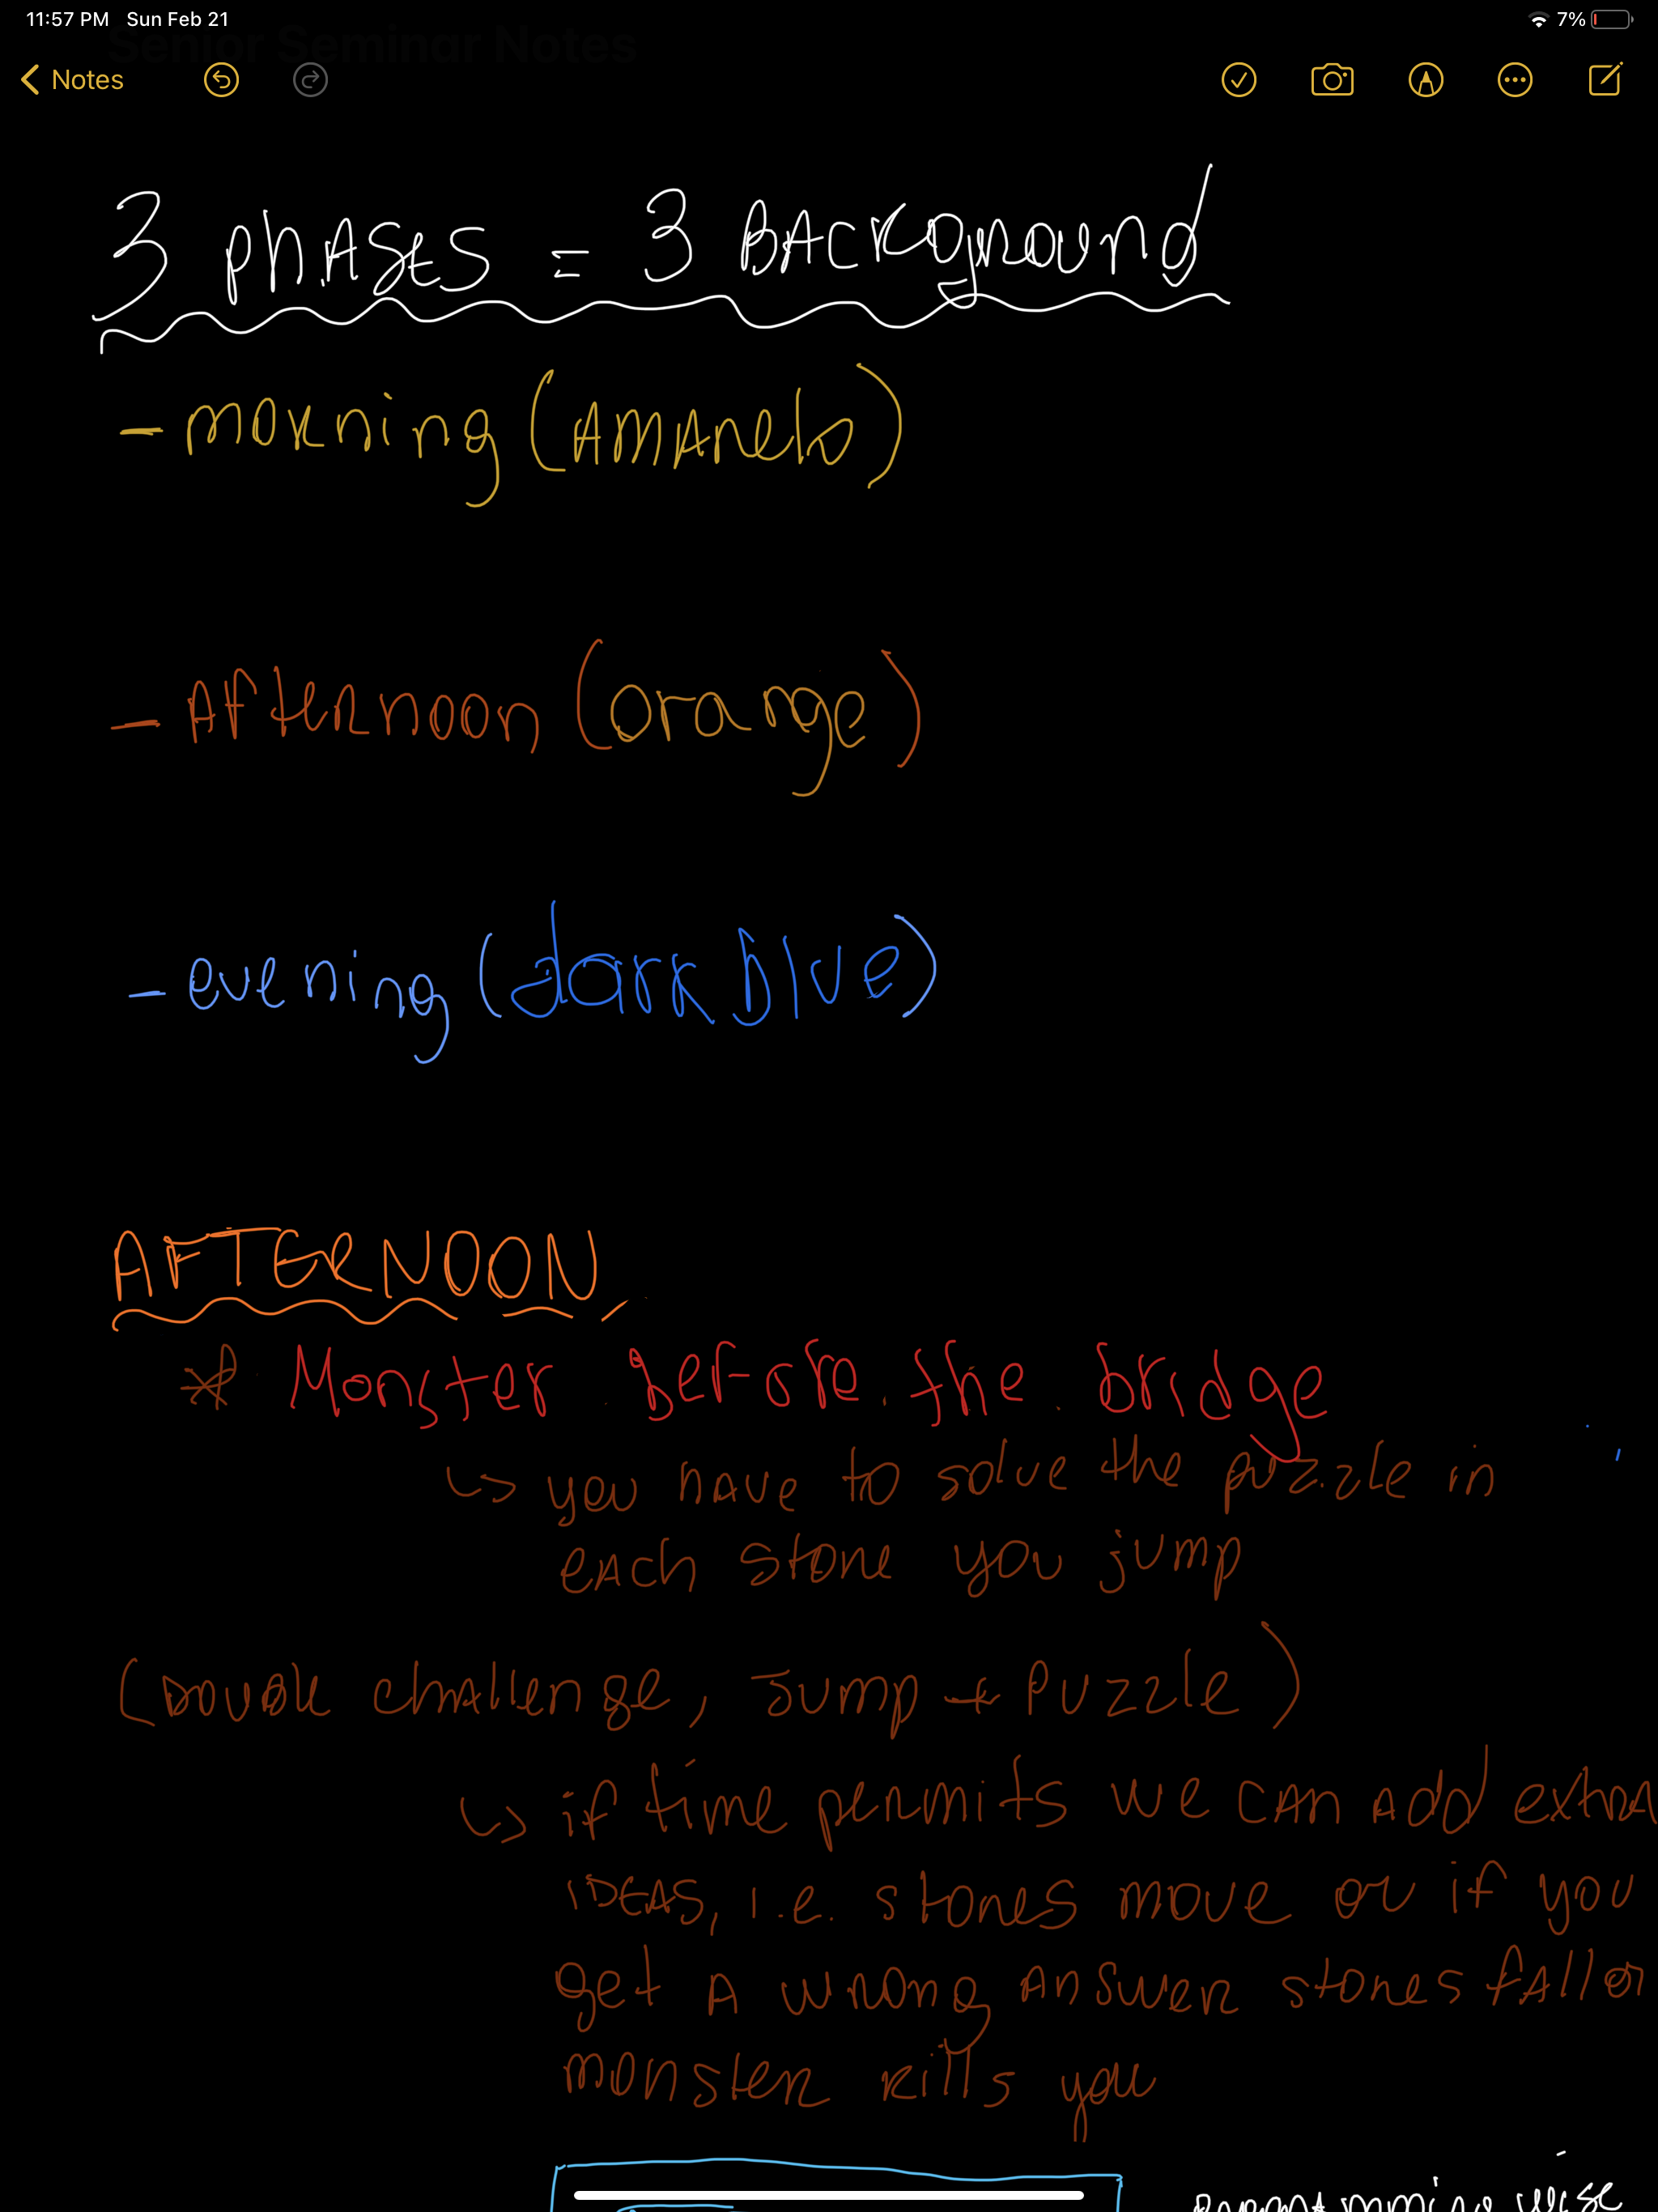 11:57 PM Sun Feb 21
7%
Senior Seminar Notes
Notes
3 PhASES = 3 BACKground
- morning (AMAnelo)
- Afternoon (orange)
- evening (dark blue)
AFTERNOON
* Monster before the bridge
↳ you have to solve the puzzle in
each stone you jump
(Double challenge, Jump + Puzzle)
↳ if time permits we can add extra
IDEAS, i.e. stones move or if you
get A wrong answer stones fall or
monster kills you